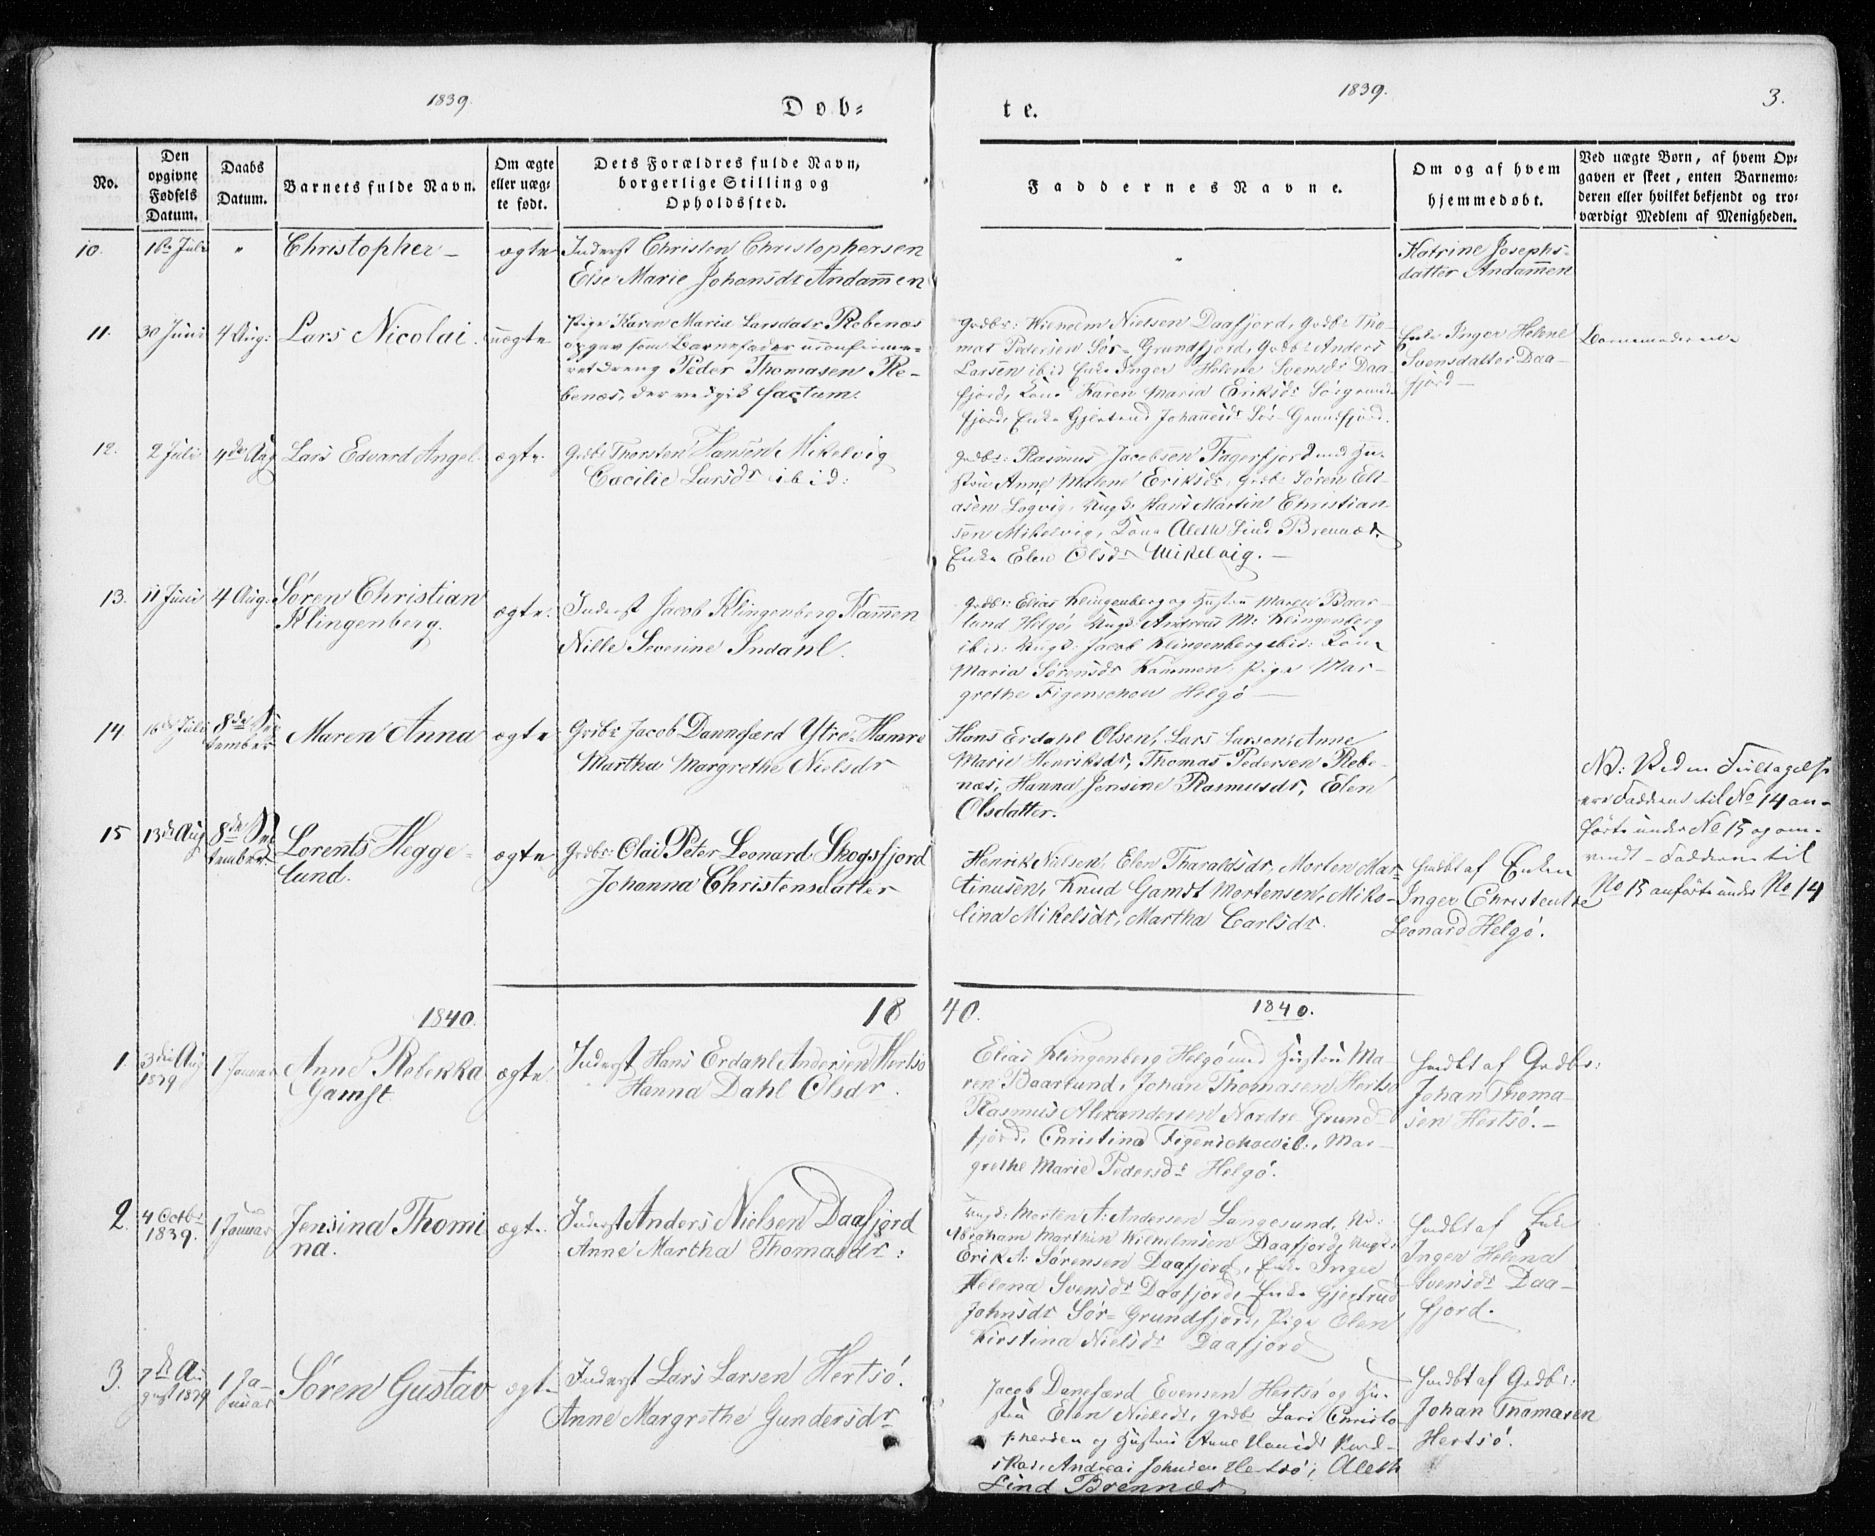 1839.
Dob=
te.
1839.
3.
No.
Den opgivne Fødsels Datum.
Daabs Datum.
Barnets fulde Navn.
Om ægte eller uægte født.
Dets Forældres fulde Navn, borgerlige Stilling og Opholdssted.
Faddernes Navne.
Om og af hvem hjemmedøbt.
Ved uægte Børn, af hvem Opgaven er skeet, enten Barnemoderen eller hvilket bekjendt og troværdigt Medlem af Menigheden.
10.
1ste Juli
"
Christopher
ægte
Inderst Christen Christophersen
Else Marie Johansdr Andammen
"
Katrine Josephs-
datter Andammen
11.
30 Juni
4 Aug:
Lars Nicolai
uægte
Pige Karen Maria Larsdatr Rebenæs
opgav som Barnefader uconfirme-
ret Dreng Peder Thomasen Re-
benæs, der vedgik factum.
Grdbr: Wilhelm Nielsen Daafjord, Grdbr Tho-
mas Pedersen Sør-Grundfjord, Grdbr Anders
Larsen ibid Enke Inger Helene Svensdr Daa-
fjord, Kone Karen Maria Eriksdr Sørgrund-
fjord, Enke Gjertrud Johannesdr Sør-Grundfjord.
Enke Inger Helene
Svensdatter Daa-
fjord
Barnemoderen
12.
2 Juli
4de Aug
Lars Edvard Angel
ægte
Grdbr Thorsten Hansen Mikelvig
Cæcilie Larsdr ibid:
Grdbr: Rasmus Jacobsen Fagerfjord med Hu-
stru Anne Malene Eriksdr, Grdbr Søren Eli-
asen Logvig, Ungk. Hans Martin Christian-
sen Mikelvig, Kone Aleth Lind Brennæs,
Enke Elen Olsdr Mikelvig.
13.
11 Juni
4 Aug.
Søren Christian
Klingenberg.
ægte.
Inderst Jacob Klingenberg Kammen
Nille Severine Indahl.
Grdbr: Elias Klingenberg og Hustru Maren Baar-
lund Helgø, Ungk: Andreas M: Klingenberg
ibid: Ungk: Jacob Klingenberg ibid: Kone
Maria Sørensdr Kammen, Pige Mar-
grethe Figenschou Helgø
14
16de Juli
8de Sep
tember
Maren Anna
ægte
Grdbr Jacob Dannefærd Ytre-Hamre
Martha Margrethe Nielsdr
Hans Erdahl Olsen, Lars Larsen, Anne
Marie Henriksdr, Thomas Pedersen Rebe-
næs, Hanna Jensine Rasmusdr, Elen
Olsdatter.
NB: Ved en Feiltagelse
ere Faddrene til No 14 an-
førte under No 15 og om-
vendt - Faddrene til
No 15 anførte under No 14
15
13de Aug
8de Sep
tember
Lorents Hegge-
lund.
ægte
Grdbr: Olai Peter Leonard Skogsfjord
Johanna Christensdatter
Henrik Nielsen, Elen Tharaldsdr, Morten Mar-
tinusen, Knud Gamst Mortensen, Miko-
lina Mikelsdr, Martha Carlsdr.
Hmdbt af Enken
Inger Christense
Leonard Helgø.
1840.
18
40.
1840.
1.
3die Aug
1839
1 Januar
Anne Rebekka
Gamst
ægte
Inderst Hans Erdahl Andersen Hertsø
Hanna Dahl Olsdr.
Elias Klingenberg Helgø med Hustru Ma-
ren Baarlund, Johan Thomasen Hertsø
Rasmus Alexandersen Nordre Grund-
fjord, Christina Figenschou ib:, Mar-
grethe Marie Pedersdr Helgø.
Hmdbt af Grdbr:
Johan Thoma-
sen Hertsø.
2.
4 Octbr
1839.
1 Januar
Jensina Thomi
na.
ægte
Inderst Anders Nielsen Daafjord
Anne Martha Thomasdr:
Ungk: Morten A: Andersen Langesund, Uk:
Abraham Marthin Wilhelmsen Daafjord, Ungk:
Erik A: Sørensen Daafjord, Enke Inger
Helena Svensdr Daafjord, Enke Gjertrud
Johnsdr Sør-Grundfjord, Pige Elen
Kirstina Nielsdr Daafjord
Hmdbt af Enke
Inger Helena
Svensdr Daa-
fjord.
3.
7de Au
gust 1839
1 Ja-
nuar
Søren Gustav
ægte
Inderst Lars Larsen Hertsø.
Anne Margrethe Gundersdr
Jacob Danefærd Evensen Hertsø og Hu-
stru Elen Nielsdr, Grdbr Lars Christo-
phersen og Hustru Anne Hansdr
Andreas Johnsen Hertsø, Aleth
Lind Brennæs
Hmdbt af Grdbr:
Johan Thomasen
Hertsø.